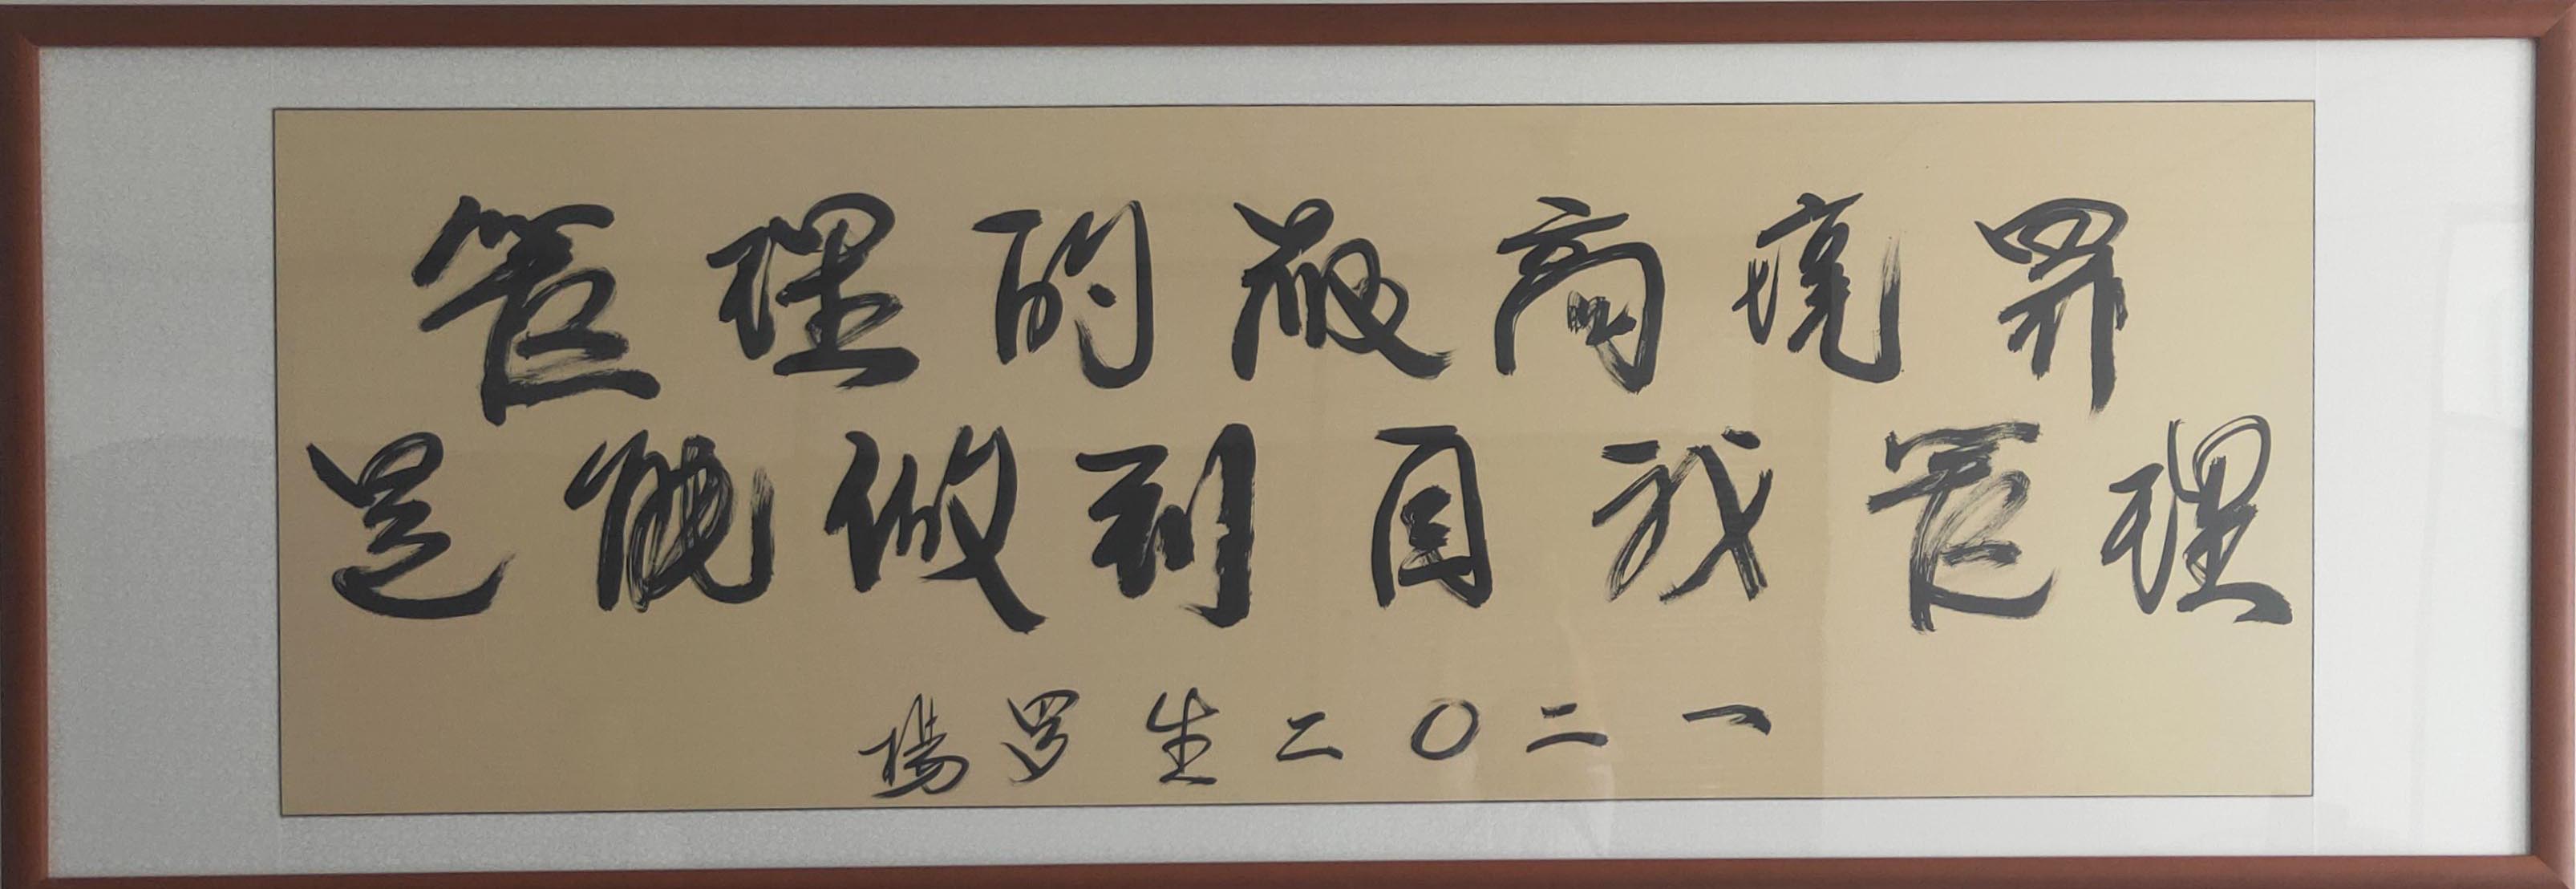 管理的最高境界
是能做到自我管理
楊罗生二〇二一